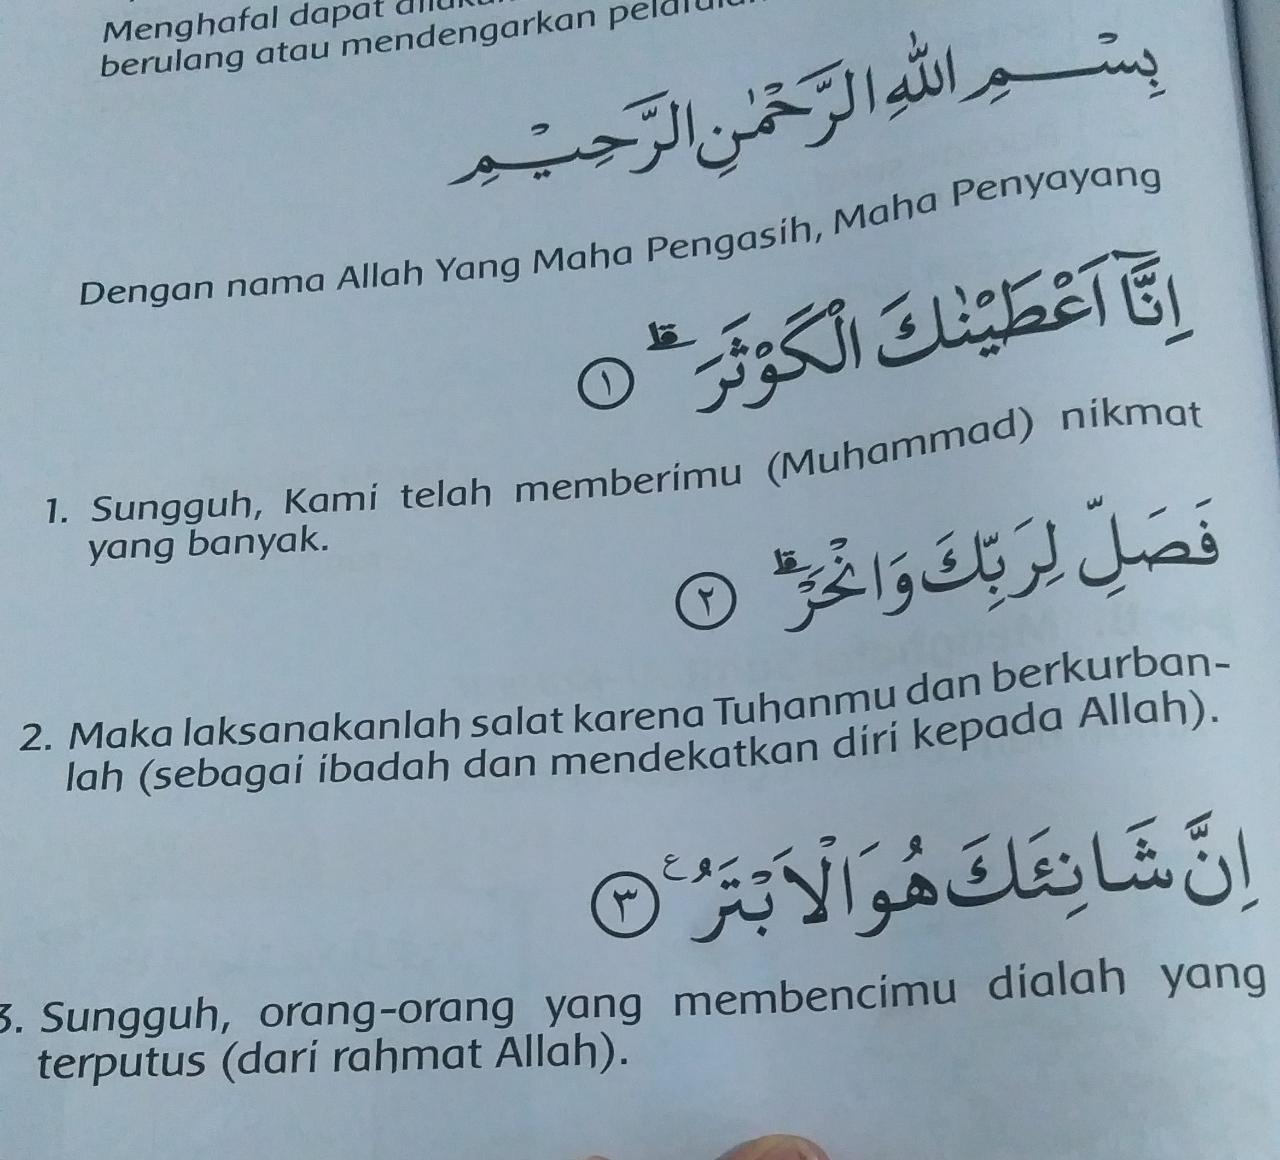 Menghafal dapat
berulang atau mendengarkan
بِسْــــمِ اللّٰهِ الرَّحْمٰنِ الرَّحِيْـــمِ
Dengan nama Allah Yang Maha Pengasih, Maha Penyayang
اِنَّآ اَعْطَيْنٰكَ الْكَوْثَرَ ۗ ١
1. Sungguh, Kami telah memberimu (Muhammad) nikmat
yang banyak.
فَصَلِّ لِرَبِّكَ وَانْحَرْ ۗ ٢
2. Maka laksanakanlah salat karena Tuhanmu dan berkurban-
lah (sebagai ibadah dan mendekatkan diri kepada Allah).
اِنَّ شَانِئَكَ هُوَ الْاَبْتَرُ ࣖ ٣
3. Sungguh, orang-orang yang membencimu dialah yang
terputus (dari rahmat Allah).